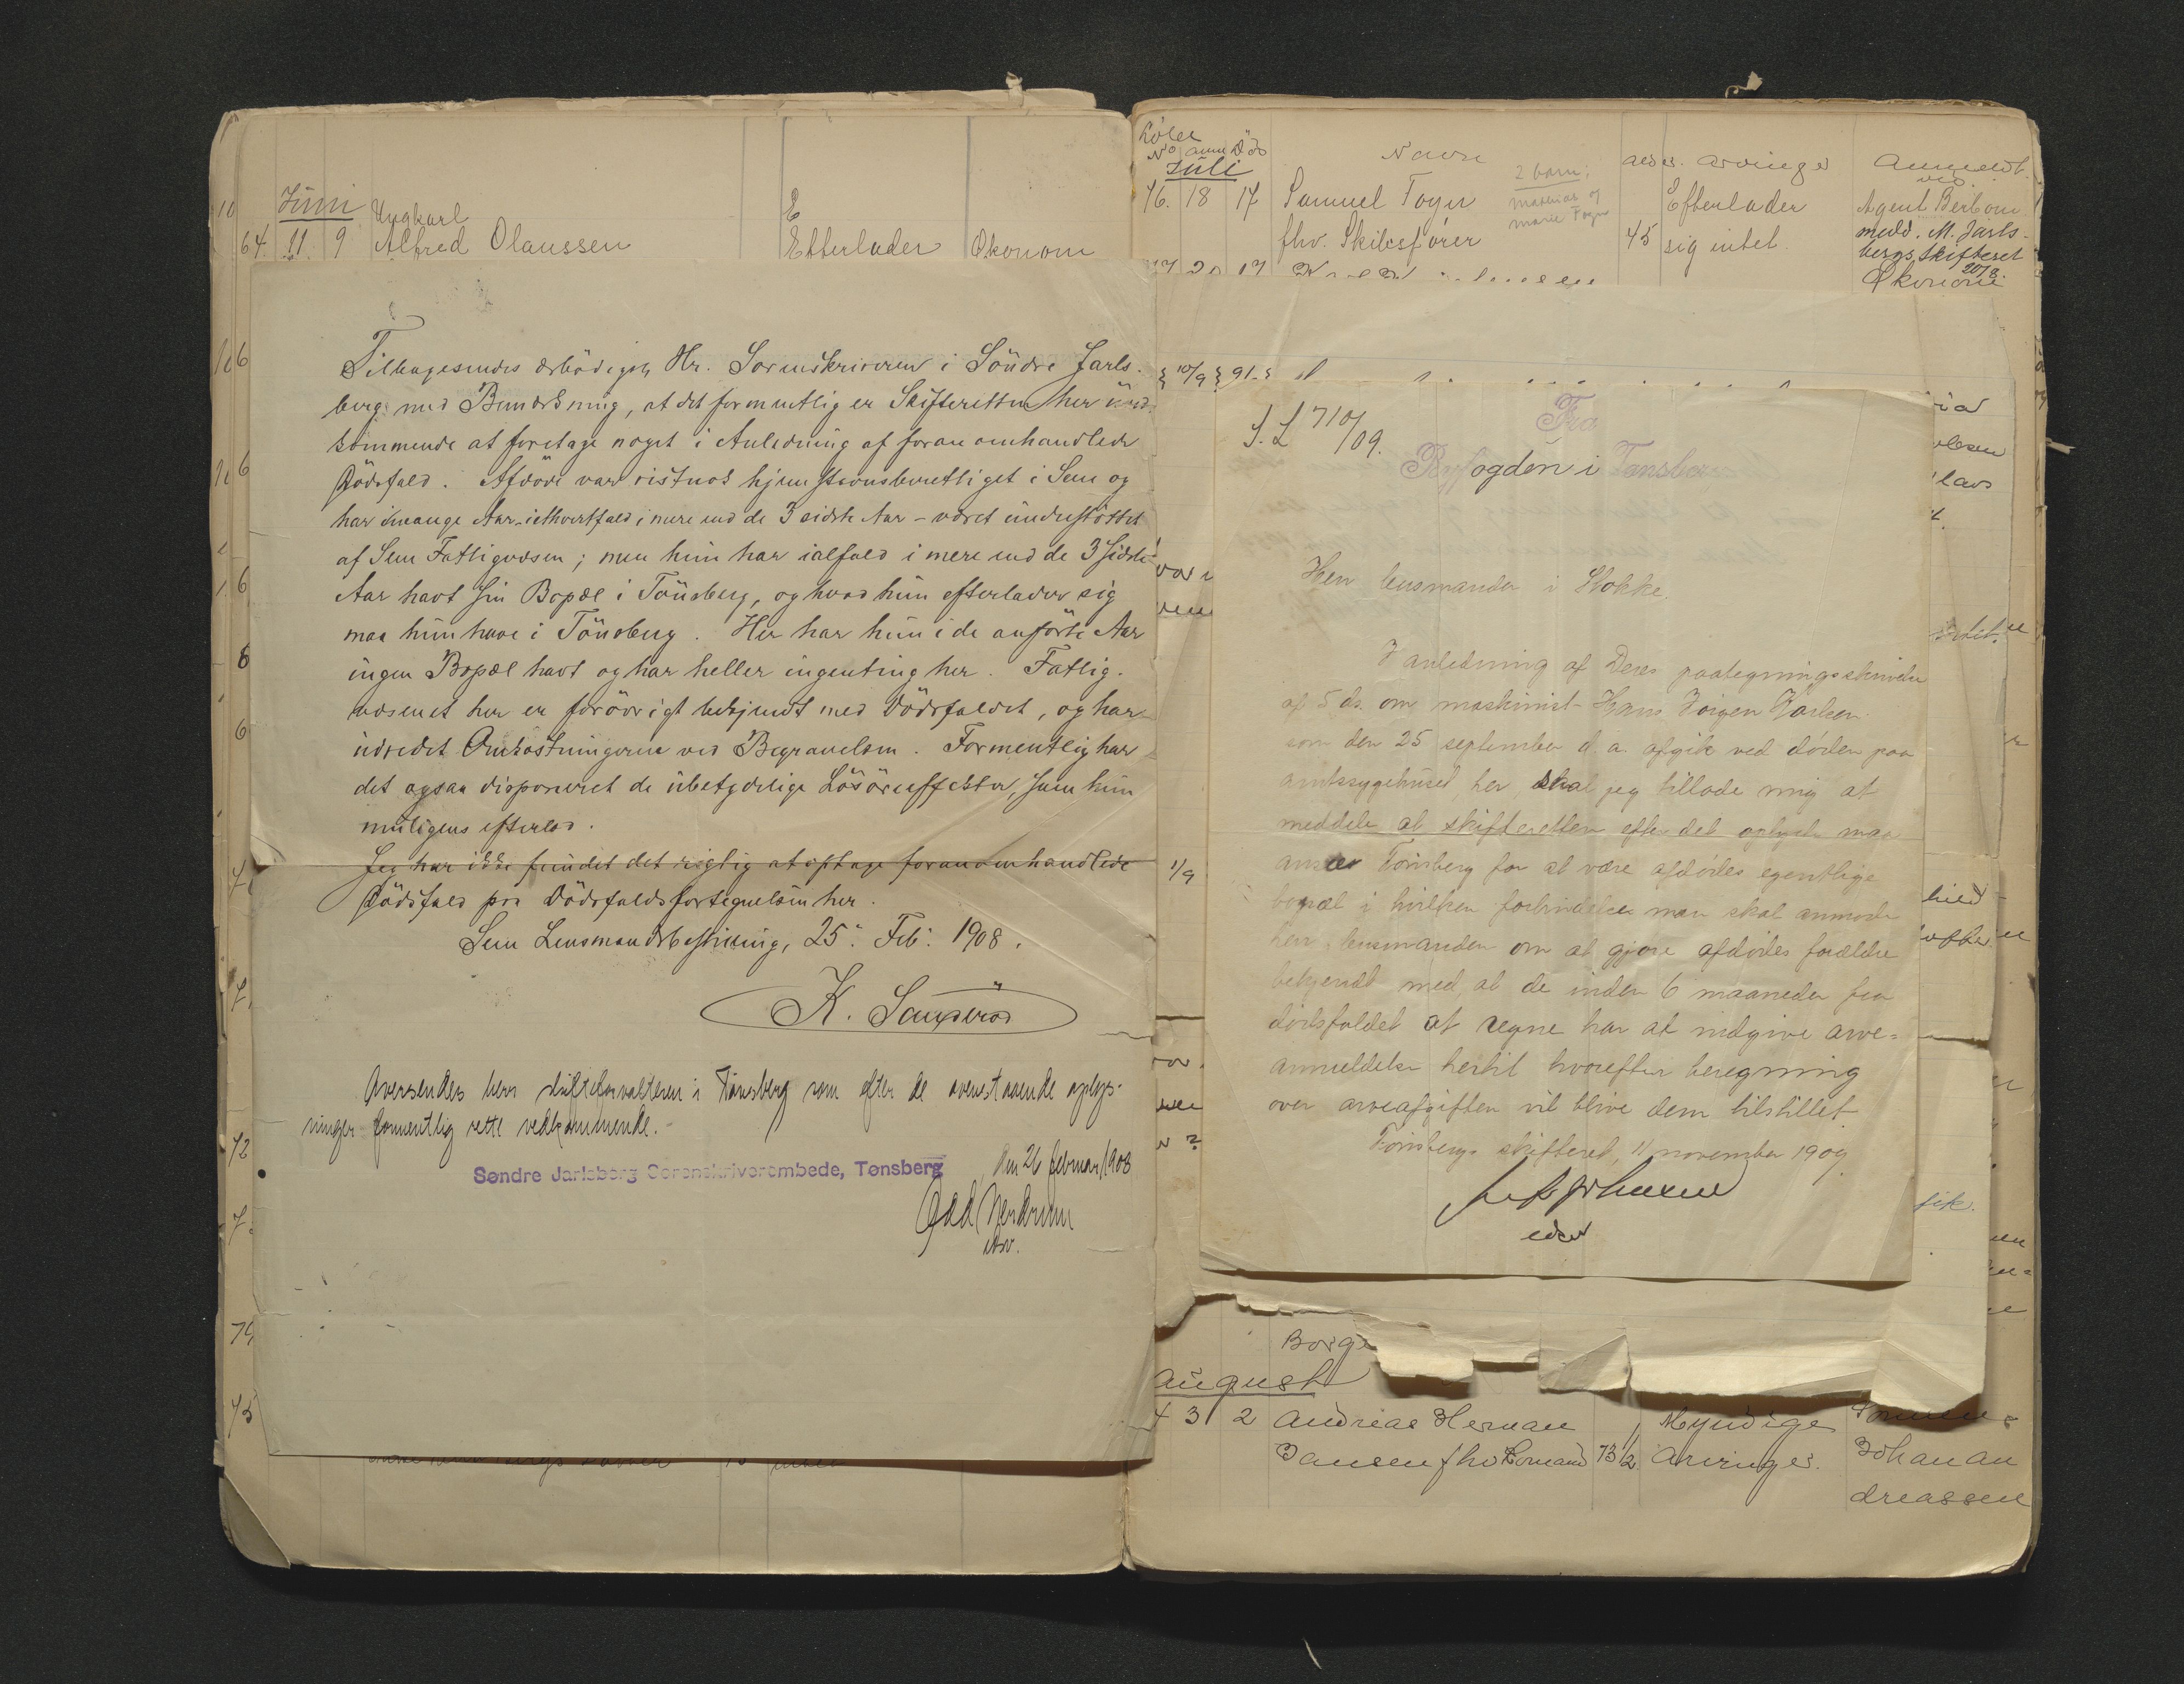 Juni
Ungkarl E
64. 11. 9 Alfred Olaussen Efterlader Økonom
Tilbagesendes ærbødigst Hr. Sorenskriveren i Søndre Jarls-
berg med Bemærkning, at det formentlig er Skifteretten her uved-
kommende at foretage noget i Anledning af foran omhandlede
Dødsfald. Afdøde var vistnok hjemstavnsberettiget i Sem og
har i mange Aar - iethvertfald i mere end de 3 sidste Aar - været understøttet
af Sem Fattigvæsen; men hun har ialfald i mere end de 3 sidste
Aar havt sin Bopæl i Tønsberg, og hvad hun efterlader sig
maa hun have i Tønsberg. Her har hun i de anførte Aar
ingen Bopæl havt og har heller ingenting her. Fattig-
væsenet her er forøvrigt bekjendt med Dødsfaldet, og har
udredet Omkostningerne ved Begravelsen. Formentlig har
det ogsaa disponeret de ubetydelige Løsøreeffekter, som hun
muligens efterlod.
Jeg har ikke fundet det rigtig at optage foranomhandlede
Dødsfald paa Dødsfaldsfortegnelsen her.
Sem Lensmandsbestilling, 25. Feb. 1908.
K.
Oversendes herr skifteforvalteren i Tønsberg som efter de ovenstaaende oplys-
ninger formentlig rette vedkommende.
Søndre Jarlsberg Sorenskriverembede, Tønsberg, den 26 februar 1908
Odd Nerdrum
No Anm Død Navn Alder Arvinger Anmeldt
Juli ved
2 barn:
Mathias og
Marie Foyn
76. 18 17 Samuel Foyn Efterlader Agent
fhv. Skibsfører 45 sig intet. medd. N. Jarls-
bergs Skifteret
20/8.
Økonom
10/9 91.
S. L 710/09.
Fra
Byfogden i Tønsberg
Herr lensmanden i Stokke.
I anledning af Deres paategningsskrivelse
af 5 ds. om maskinist Hans Jørgen Karlsen
som den 25 september d. a. afgik ved døden paa
amtssygehuset her, skal jeg tillade mig at
meddele at skifteretten efter det oplyste maa
ansee Tønsberg for at være afdødes egentlige
bopæl i hvilken forbindelse man skal anmode
herr lensmanden om at gjøre afdødes forældre
bekjendt med, at de inden 6 maaneder fra
dødsfaldet at regne har at indgive arve-
anmeldelse hertil hvorefter beregning
over arveafgiften vil blive dem tilstillet.
Tønsbergs skifteret, 11 november 1909
1/9
Borge
August
4 3 2 Andreas Herman Myndige
Jansen fhv Lomand 73 1/2 Arvinger. Johan An
dreassen
72
74
75